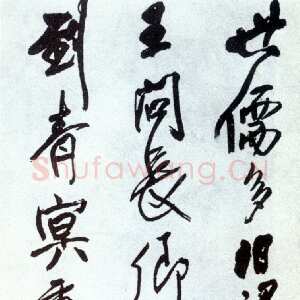 世儒多汩
王問長卿
到青冥
Shufawang.cn